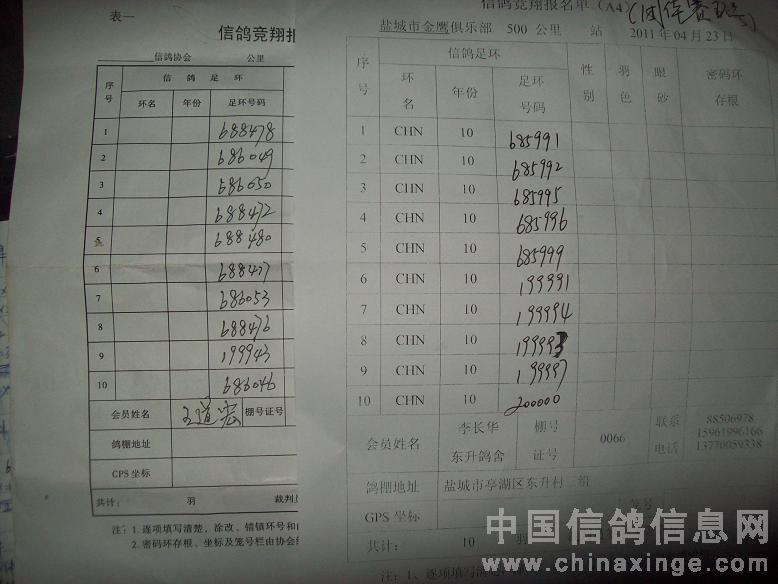 表一
信鸽竞翔报
信鸽协会 公里
序号 信鸽足环
环名 年份 足环号码
1 688478
2 686049
3 686050
4 688472
5 688480
6 688477
7 686053
8 688476
9 199943
10 686046
会员姓名 王道宏 棚号证号
鸽棚地址
GPS 坐标
共计： 羽 裁判员
注：1. 逐项填写清楚，涂改、错镇环号和
2. 密码环存根、坐标及笼号栏由协会
信鸽竞翔报名单（A4）
盐城市金鹰俱乐部 500 公里 站 2011 年 04 月 23 日
序号 信鸽足环 性别 羽色 眼砂 密码环存根
环名 年份 足环号码
1 CHN 10 685991
2 CHN 10 685992
3 CHN 10 685995
4 CHN 10 685996
5 CHN 10 685999
6 CHN 10 199991
7 CHN 10 199994
8 CHN 10 199993
9 CHN 10 199997
10 CHN 10 200000
会员姓名 李长华 东升鸽舍 棚号证号 0066 联系电话 88506978
15961996166
13770059338
鸽棚地址 盐城市亭湖区东升村 组
GPS 坐标
共计： 10 羽
注：1、逐项填写清
中国信鸽信息网
www.chinaxinge.com